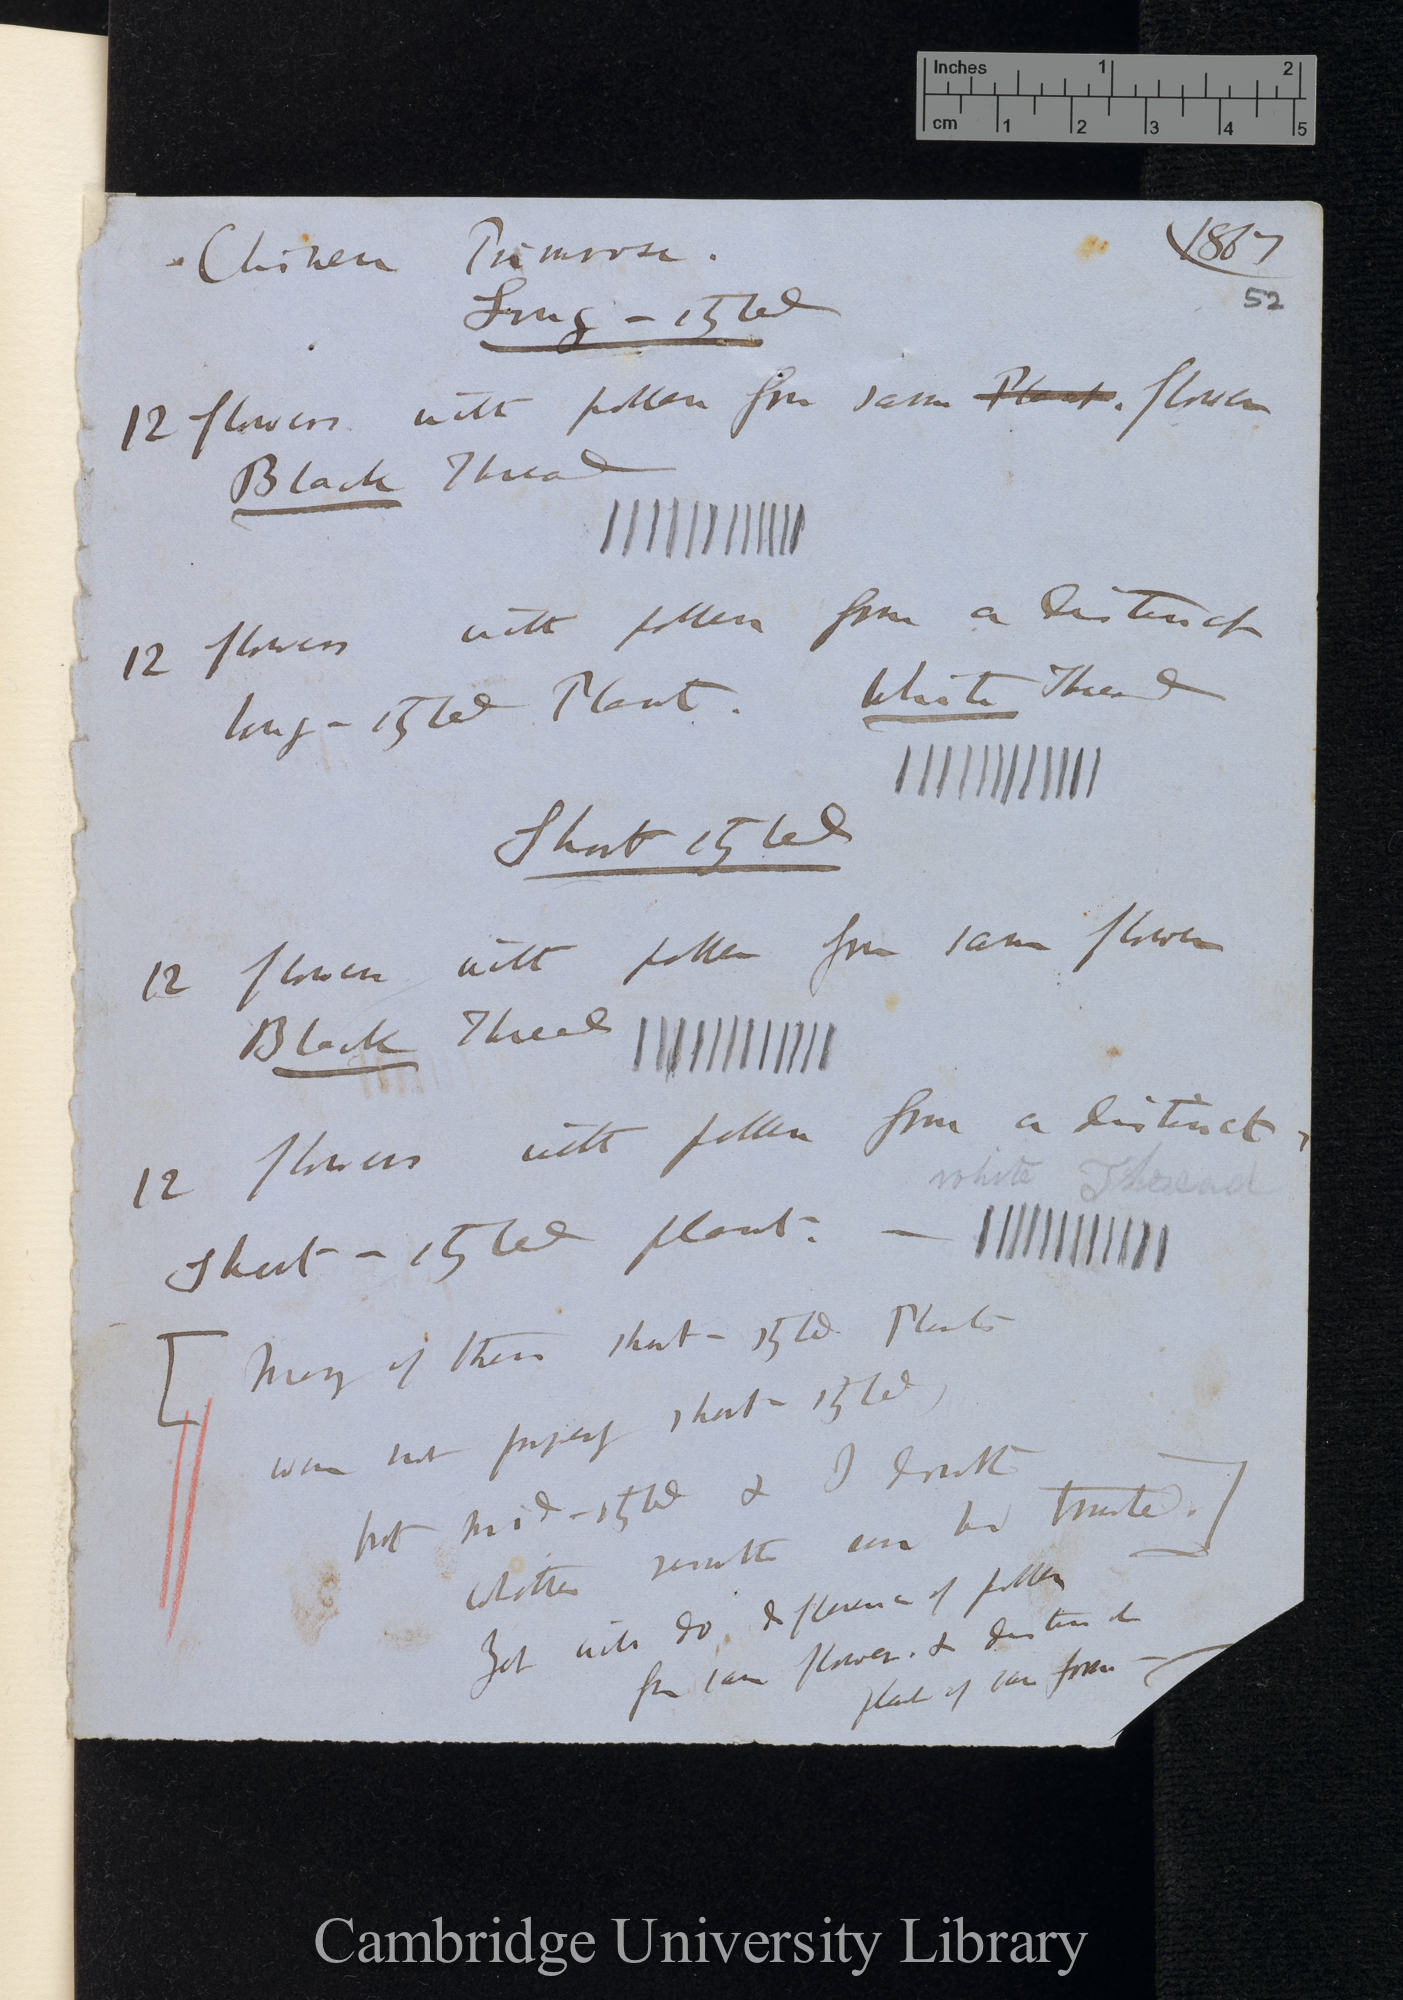 Inches 1 2
cm 1 2 3 4 5
1867
52
Chinese Primrose.
Long-styled
12 flowers with pollen from same Plant. flower
Black Thread
12 flowers with pollen from a distinct
long-styled Plant. White Thread
Short styled
12 flowers with pollen from same flower
Black Thread
12 flowers with pollen from a distinct,
white Thread
Short-styled plant. —
[Many of these short-styled Plants
were not properly short-styled,
but mid-styled & I doubt
whether results can be trusted.]
Yet will do difference of pollen
from same flower. & distinct
plant of same form —
Cambridge University Library